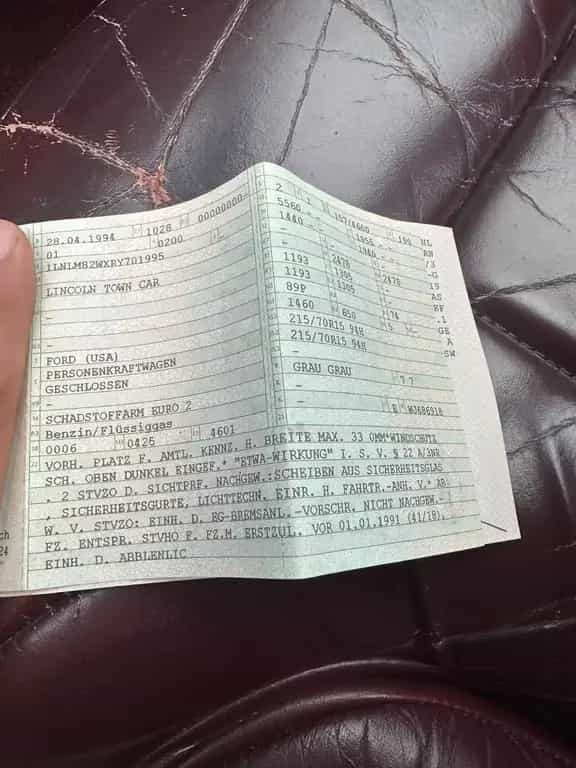 28.04.1994 1028 00000000-
01 0200 -
1LNLM82WXRY701995
LINCOLN TOWN CAR
-
-
FORD (USA)
PERSONENKRAFTWAGEN
GESCHLOSSEN
-
SCHADSTOFFARM EURO 2
Benzin/Flüssiggas
0006 0425 4601
2 157/4600 195
5560 - 1955 -
1440 - 1940 -
-
1193 2476 -
1193 1395 2476
89P 1305 -
-
1460 650 74
215/70R15 94H 5 -
215/70R15 94H
-
GRAU GRAU
- 77
-
WJ686918
NL
RN
/3
-G
19
AS
EF
.1
GE
A
SW
VORH. PLATZ F. AMTL. KENNZ. H. BREITE MAX. 330MM*WINDSCHUTZ
SCH. OBEN DUNKEL EINGEF.* "ETWA-WIRKUNG" I. S. V. § 22 A/3NR
. 2 STVZO D. SICHTPRF. NACHGEW.:SCHEIBEN AUS SICHERHEITSGLAS
, SICHERHEITSGURTE, LICHTTECHN. EINR. H. FAHRTR.-ANH. V.* AB
W. V. STVZO: EINH. D. EG-BREMSANL.-VORSCHR. NICHT NACHGEW.-
FZ. ENTSPR. STVHO F. FZ.M. ERSTZUL. VOR 01.01.1991 (41/18),
EINH. D. ABBLENLIC
ch
24